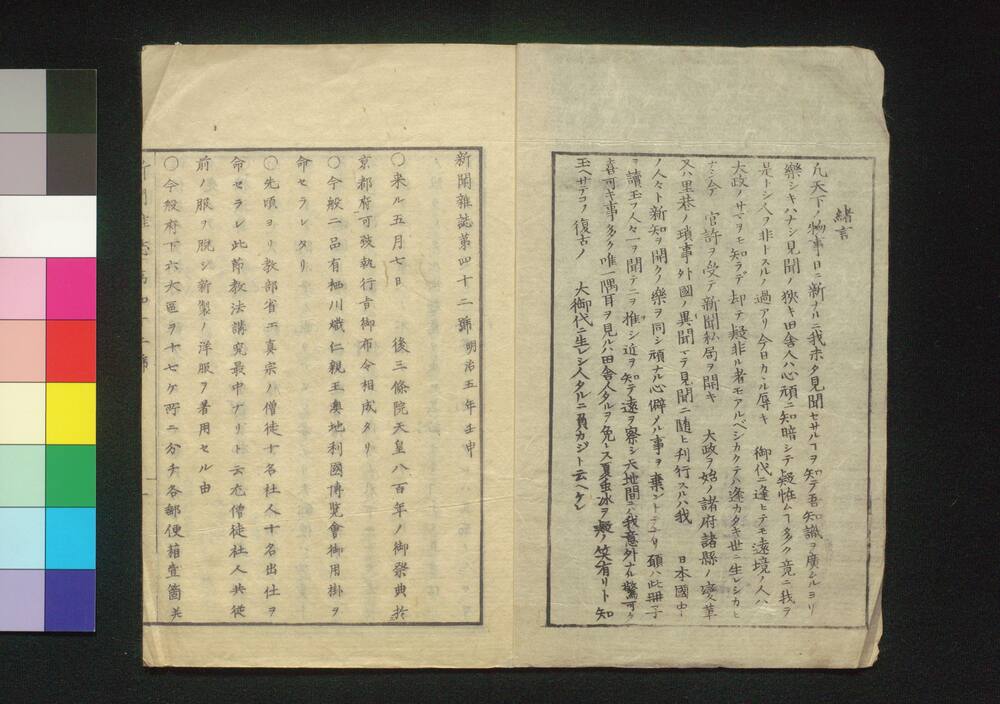 緒言
凡天下ノ物事日ニ新ナルニ我未タ見聞セサルヿヲ知テ吾知識ヲ廣シルヨリ
樂シキハナシ見聞ノ狹キ田舎人ハ心頑ニ知暗シテ疑恠ムヿ多ク竟ニ我ヲ
是トシ人ヲ非トスルノ過アリ今日カヽル辱キ 御代ニ逢ヒテモ遠境ノ人ハ
大政ノサマヲモ知ラデ却テ疑非ル者モアルベシカクテハ逢カタキ世ニ生レシカヒ
ナシ今 官許ヲ受テ新聞私局ヲ開キ 大政ヲ始ノ諸府諸縣ノ變革
又ハ里巷ノ瑣事外國ノ異聞マテ見聞ニ随ヒ刊行スルハ我 日本國中
ノ人々ト新知ヲ開クノ樂ヲ同シ頑ナル心僻メル事ヲ棄ントテナリ 碩ハ此冊子
ヲ讀玉ヲ人々一ヲ聞テニヲ推シ近ヲ知テ遠ヲ察シ天地間ニハ我意外ナル驚可ク
喜可キ事多ク唯一隅耳ヲ見ルハ田舎人タルヲ免レス夏虫氷ヲ疑ノ笑有リト知
玉ヘサテコソ復古ノ 大御代ニ生レシ人タルニ負カジト云ヘケレ
新聞雜誌第四十二號 明治五年壬申
〇来ル五月七日 後三條院天皇八百年ノ御祭典於
京都府可被執行旨御布令相成タリ
〇今般二品有栖川熾仁親王澳地利國博覽會御用掛ヲ
命セラレタリ
〇先頃ヨリ教部省エ真宗ノ僧徒十名社人十名出仕ヲ
命セラレ此節教法講究最中ナリト云尤僧徒社人共従
前ノ服ヲ脱シ新製ノ洋服ヲ着用セル由
〇今般府下六大區ヲ十七ケ所ニ分チ各郵便箱壹箇共